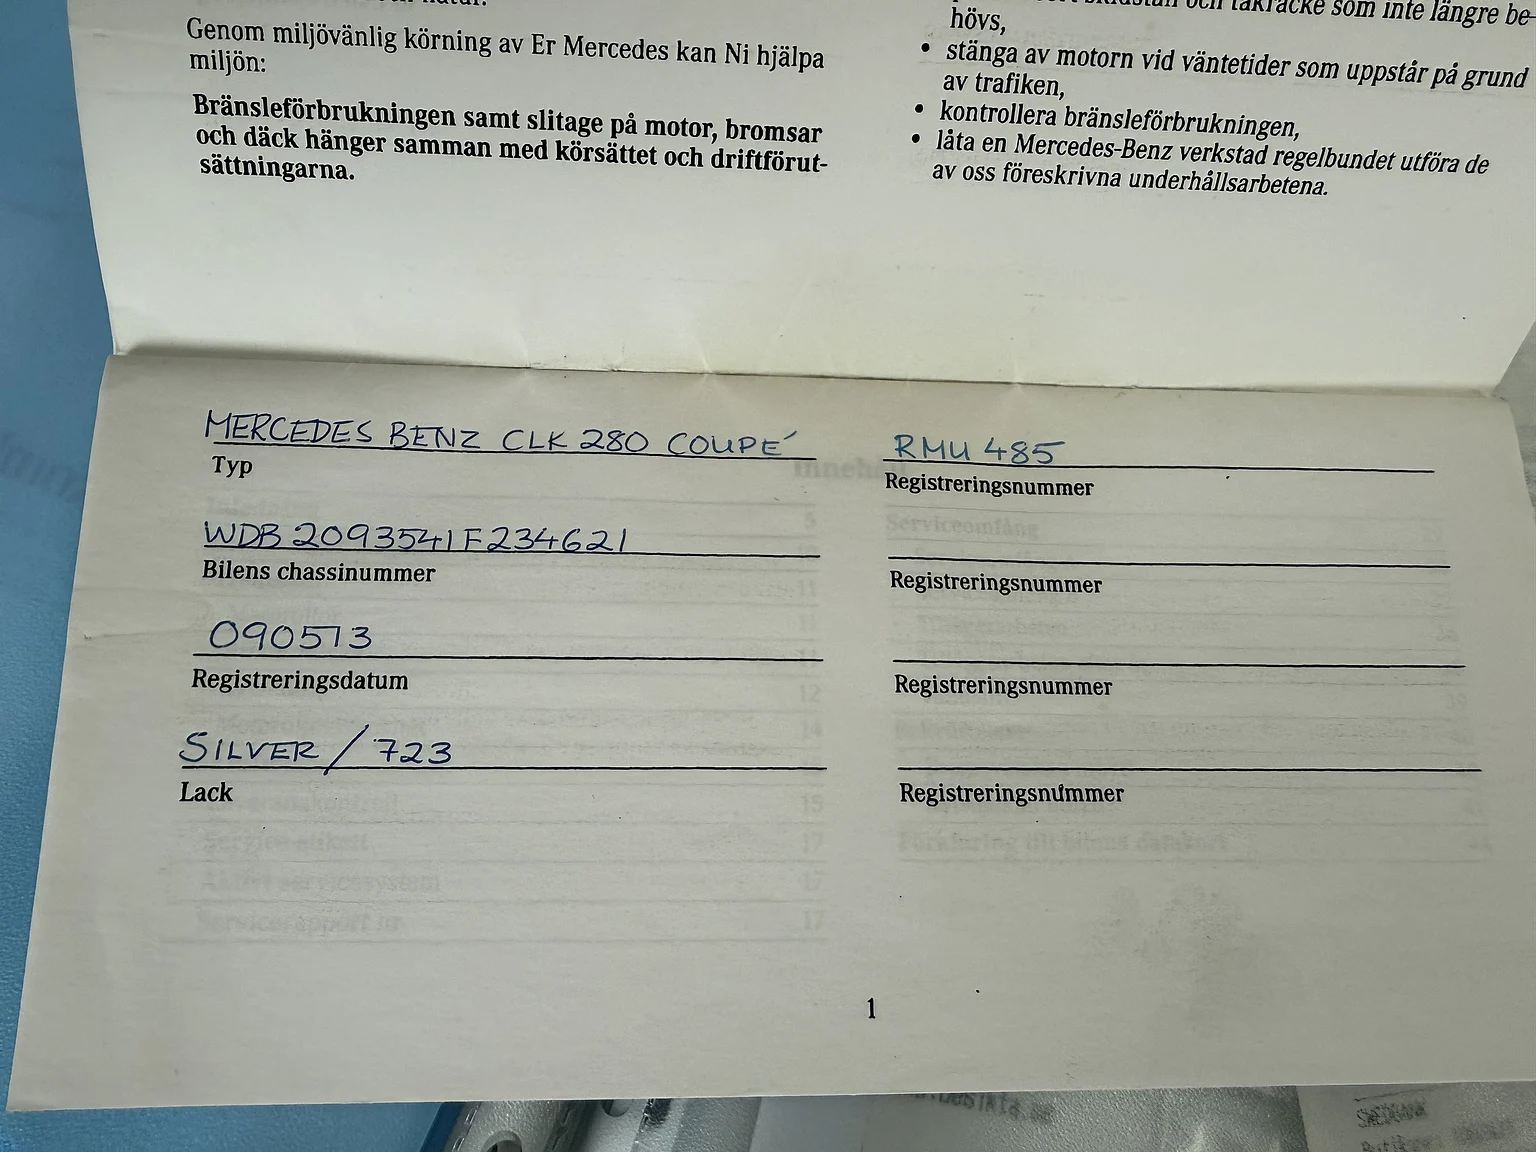 Genom miljövänlig körning av Er Mercedes kan Ni hjälpa
miljön:
Bränsleförbrukningen samt slitage på motor, bromsar
och däck hänger samman med körsättet och driftförut-
sättningarna.
och takräcke som inte längre be-
hövs,
• stänga av motorn vid väntetider som uppstår på grund
av trafiken,
• kontrollera bränsleförbrukningen,
• låta en Mercedes-Benz verkstad regelbundet utföra de
av oss föreskrivna underhållsarbetena.
MERCEDES BENZ CLK 280 COUPÉ
Typ
WDB 2093541F234621
Bilens chassinummer
090513
Registreringsdatum
SILVER / 723
Lack
RMU 485
Registreringsnummer
Registreringsnummer
Registreringsnummer
Registreringsnummer
1